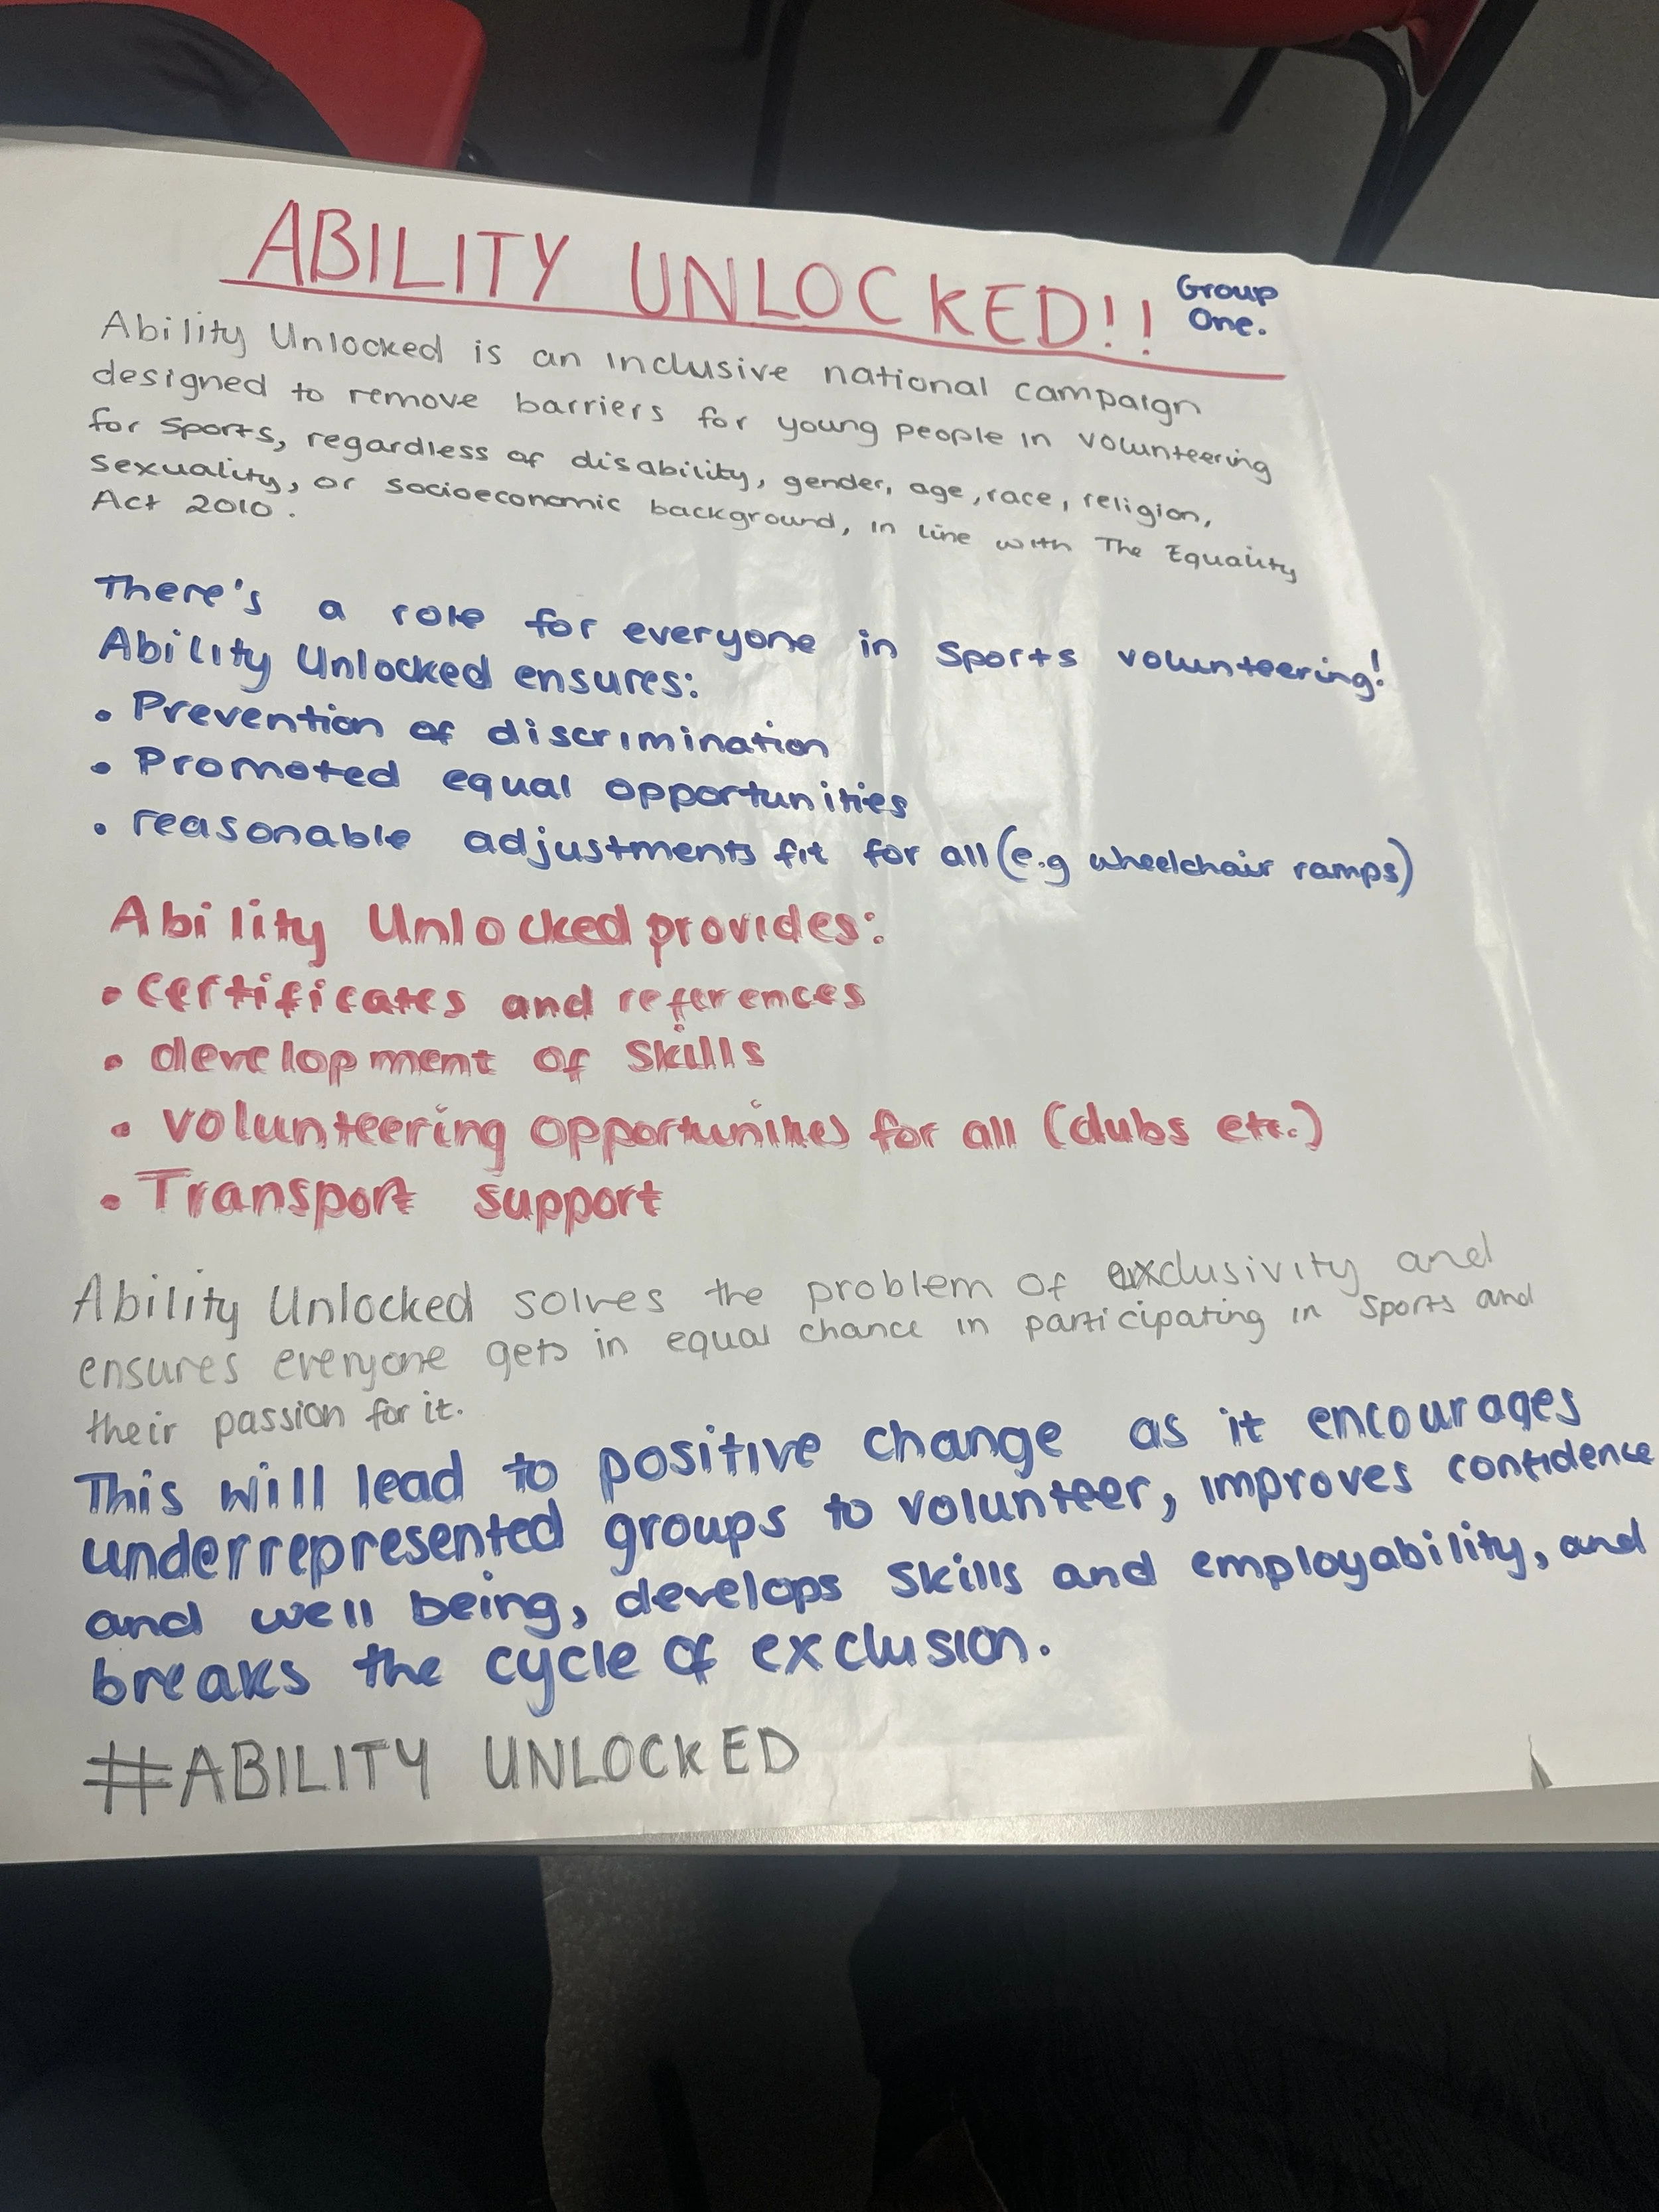 ABILITY UNLOCKED!!
Group
One.
Ability Unlocked is an inclusive national campaign
designed to remove barriers for young people in volunteering
for sports, regardless of disability, gender, age, race, religion,
sexuality, or socioeconomic background, in line with The Equality
Act 2010.
There's a role for everyone in sports volunteering!
Ability Unlocked ensures:
• Prevention of discrimination
• Promoted equal opportunities
• reasonable adjustments fit for all (e.g wheelchair ramps)
Ability Unlocked provides:
• certificates and references
• development of skills
• volunteering opportunities for all (clubs etc.)
• Transport support
Ability Unlocked solves the problem of exclusivity and
ensures everyone gets in equal chance in participating in sports and
their passion for it.
This will lead to positive change as it encourages
underrepresented groups to volunteer, improves confidence
and well being, develops skills and employability, and
breaks the cycle of exclusion.
#ABILITY UNLOCKED